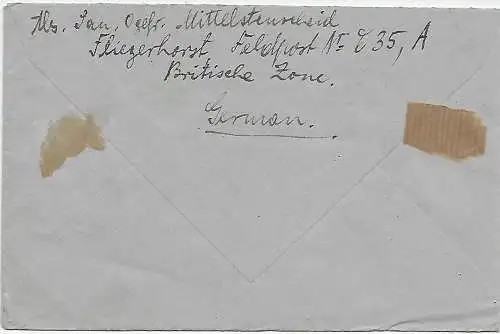 Abs. San. Obgfr. Mittelstenscheid
Fliegerhorst Feldpost Nr. E 35, A
Britische Zone.
German.